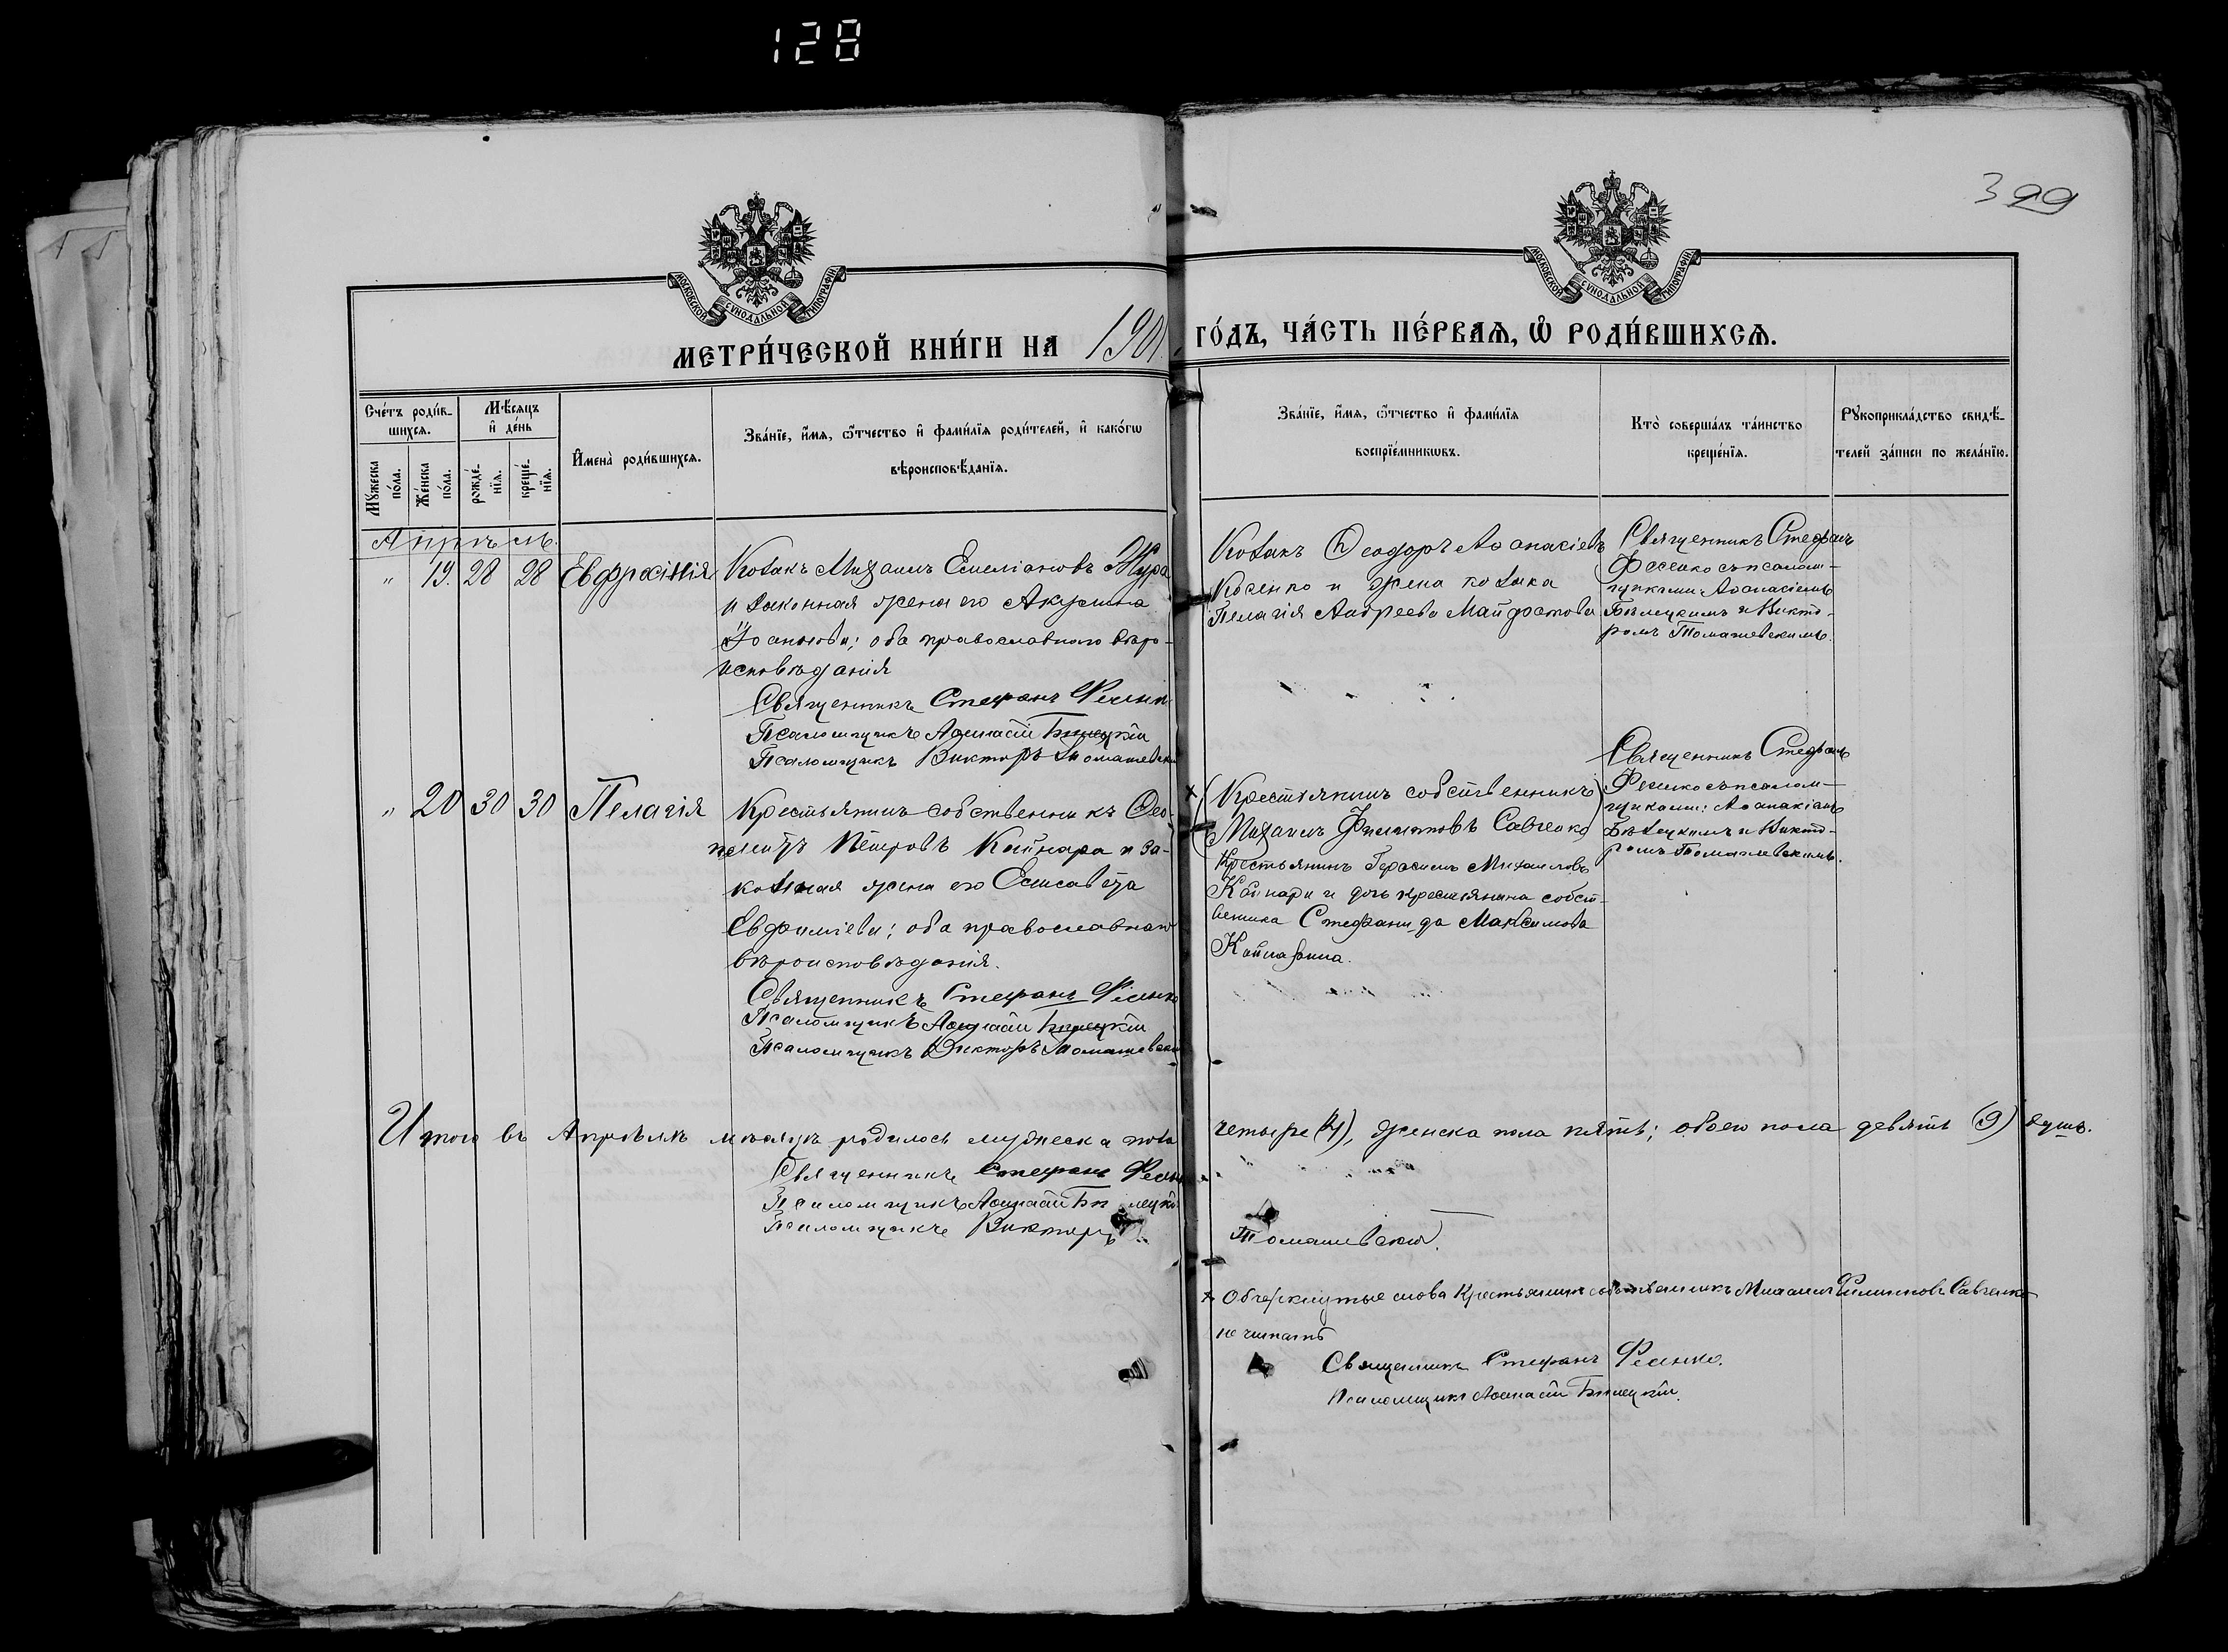 128
399
МОСКОВСКОЙ СѴНОДАЛЬНОЙ ТИПОГРАФІИ
МОСКОВСКОЙ СѴНОДАЛЬНОЙ ТИПОГРАФІИ
МЕТРИ́ЧЕСКОЙ КНИ́ГИ НА 1901
ГО́ДЪ, ЧА́СТЬ ПЕ́РВАѦ, Ѡ҆ РОДИ́ВШИХСѦ.
Сче́тъ роди́в-
шихсѧ.
Мѣ́сѧцъ
и҆ де́нь
Мꙋ́жеска
по́ла.
Же́нска
по́ла.
рожде́-
нїѧ.
креще́-
нїѧ.
И҆мена̀ роди́вшихсѧ.
Зва́нїе, и҆́мѧ, ѻ҆́тчество и҆ фами́лїѧ роди́телей, и҆ како́гѡ
вѣроисповѣ́данїѧ.
Зва́нїе, и҆́мѧ, ѻ҆́тчество и҆ фами́лїѧ
воспрїе́мникѡвъ.
Кто̀ соверша́лъ та́инство
креще́нїѧ.
Рꙋкоприкла́дство свидѣ́-
телей за́писи по жела́нїю.
Апрѣль.
" 19. 28 28 Евфросинія
Козакъ Михаилъ Емеліановъ Жура
и законная жена его Акулина
Іоаннова; оба православнаго вѣро-
исповѣданія
Священникъ Стефанъ Фесенко
Псаломщикъ Аѳанасій Бѣлецкій
Псаломщикъ Викторъ Томашевскій
Козакъ Ѳеодоръ Аѳанасіевъ
Косенко и жена козака
Пелагія Андреева
Священникъ Стефанъ
Фесенко съ псалом-
щиками Аѳанасіемъ
Бѣлецкимъ и Викто-
ромъ Томашевскимъ.
" 20 30 30 Пелагія
Крестьянинъ собственникъ Ѳео-
пемптъ Петровъ Кайнара и за-
конная жена его Елисавета
Евфиміева; оба православнаго
вѣроисповѣданія.
Священникъ Стефанъ Фесенко
Псаломщикъ Аѳанасій Бѣлецкій
Псаломщикъ Викторъ Томашевскій
× (Крестьянинъ собственникъ)
(Михаилъ Филиповъ Савченко)
Крестьянинъ Герасимъ Михаиловъ
Кайнара и дочь крестьянина собст-
веника Стефанида Максимова
Кайнарина.
Священникъ Стефанъ
Фесенко съ псалом-
щиками: Аѳанасіемъ
Бѣлецкимъ и Викто-
ромъ Томашевскимъ.
Итого въ Апрѣлѣ мѣсяцѣ родилось мужеска пола
четыре (4), женска пола пять; обоего пола девять (9) душъ.
Священникъ Стефанъ Фесенко
Псаломщикъ Аѳанасій Бѣлецкій
Псаломщикъ Викторъ
Томашевскій.
× Обчеркнутые слова Крестьянинъ собственникъ Михаилъ Филиповъ Савченко
не читать
Священникъ Стефанъ Фесенко.
Псаломщикъ Аѳанасій Бѣлецкій.